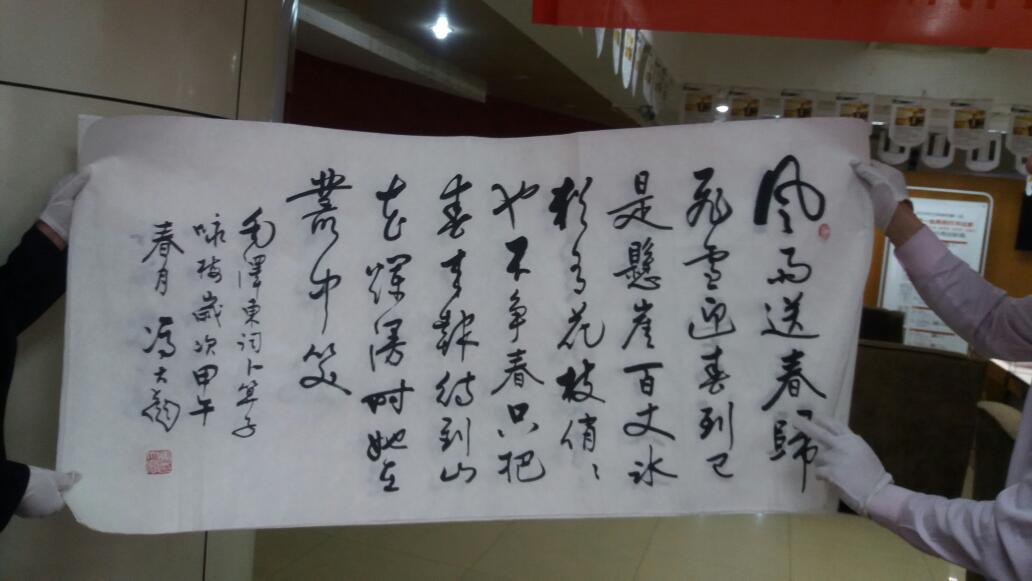 风雨送春歸
飛雪迎春到已
是懸崖百丈冰
犹有花枝俏々
也不争春只把
春来報待到山
花爛漫时她在
叢中笑
毛澤東词卜算子
咏梅歲次甲午
春月 馮大